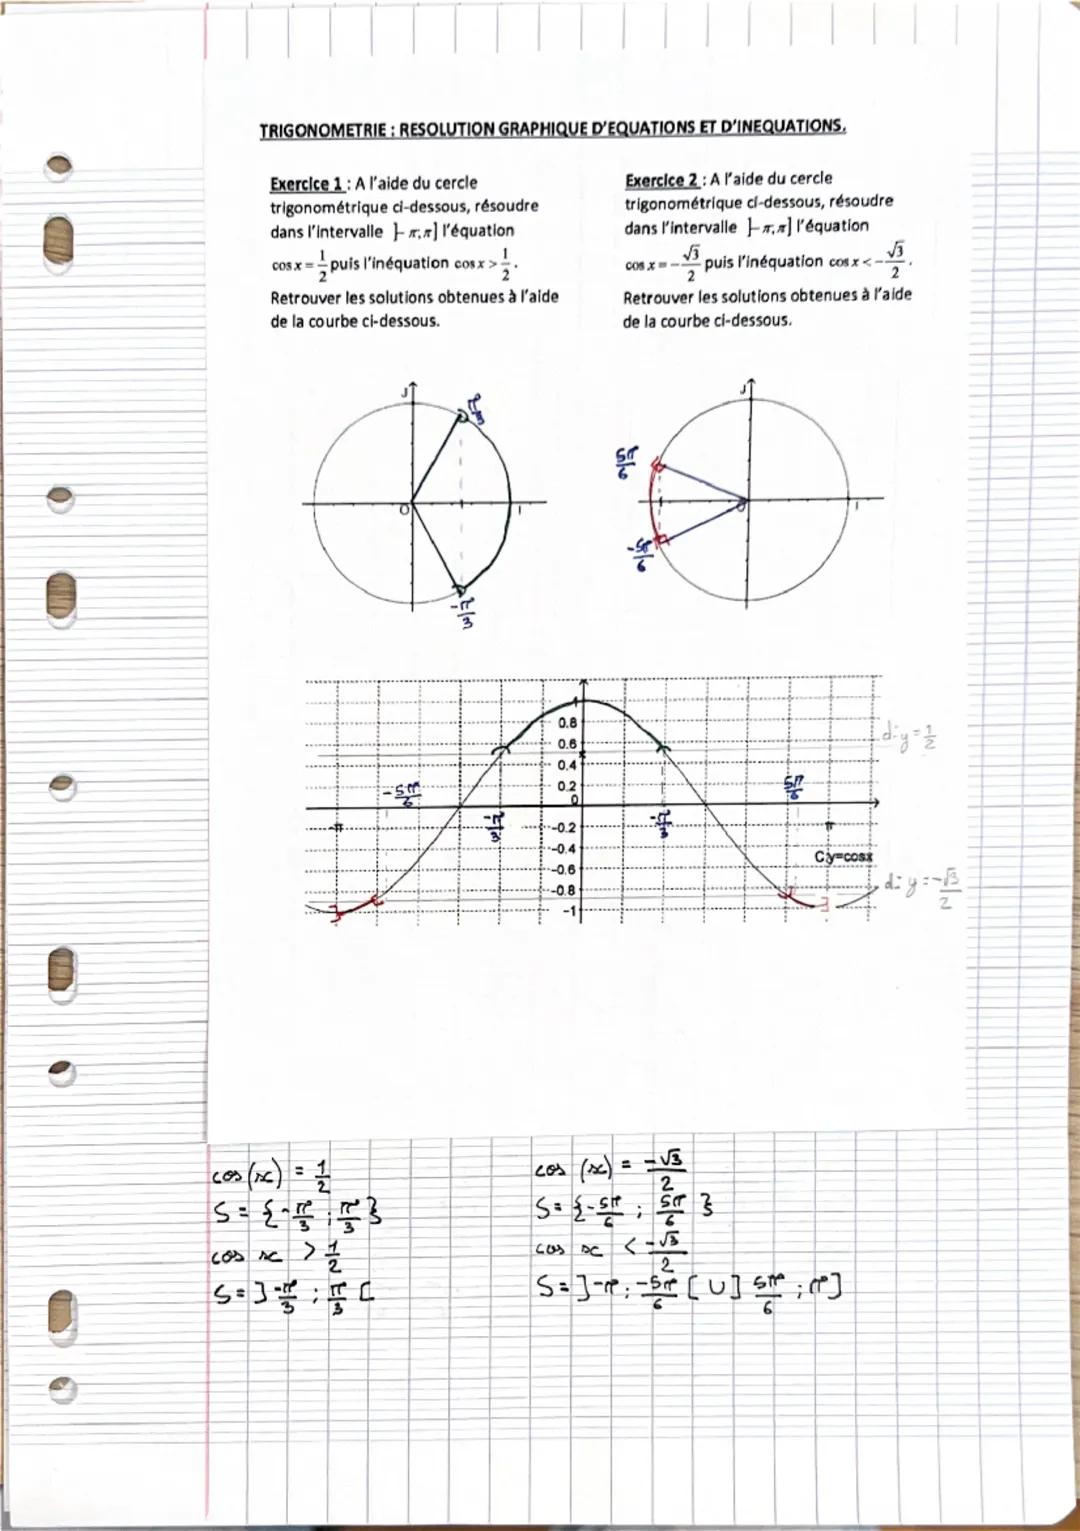 TRIGONOMETRIE : RESOLUTION GRAPHIQUE D'EQUATIONS ET D'INEQUATIONS.
Exercice 1 : A l'aide du cercle
trigonométrique ci-dessous, résoudre
dans l'intervalle ]-π;π] l'équation
cos x = 1/2 puis l'inéquation cos x > 1/2.
Retrouver les solutions obtenues à l'aide
de la courbe ci-dessous.
Exercice 2 : A l'aide du cercle
trigonométrique ci-dessous, résoudre
dans l'intervalle ]-π;π] l'équation
cos x = -√3/2 puis l'inéquation cos x < -√3/2.
Retrouver les solutions obtenues à l'aide
de la courbe ci-dessous.
J
π/3
O
I
-π/3
J
5π/6
O
I
-5π/6
1
0.8
0.6
0.4
0.2
0
-0.2
-0.4
-0.6
-0.8
-1
d: y = 1/2
-5π/6
5π/6
-π/3
-π/3
-π
π
C:y=cosx
d: y = -√3/2
cos (x) = 1/2
S = {-π/3 ; π/3}
cos x > 1/2
S = ]-π/3 ; π/3 [
cos (x) = -√3/2
S = {-5π/6 ; 5π/6 }
cos x < -√3/2
S = ]-π ; -5π/6 [ U ] 5π/6 ; π]